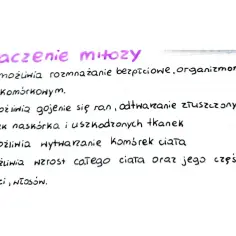 aczenie mitozy
możliwia rozmnażanie bezpłciowe, organizmom
komórkowym.
ożliwia gojenie się ran, odtwarzanie złuszczony
ek naskórka i uszkodzonych tkanek
ożliwia wytwarzanie komórek ciała
żliwia wzrost całego ciała oraz jego częś
ci, włosów.